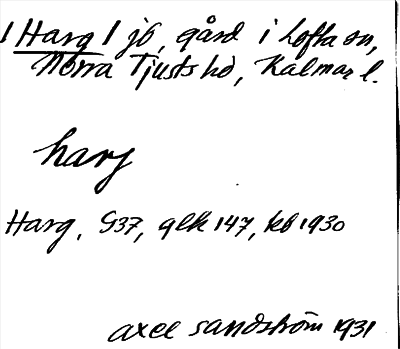 / Harg / jb, gård i Lofta sn,
Norra Tjusts hd, Kalmar l.
harj
Harg, G37, glk 147, kb 1930
Axel Sandström 1931